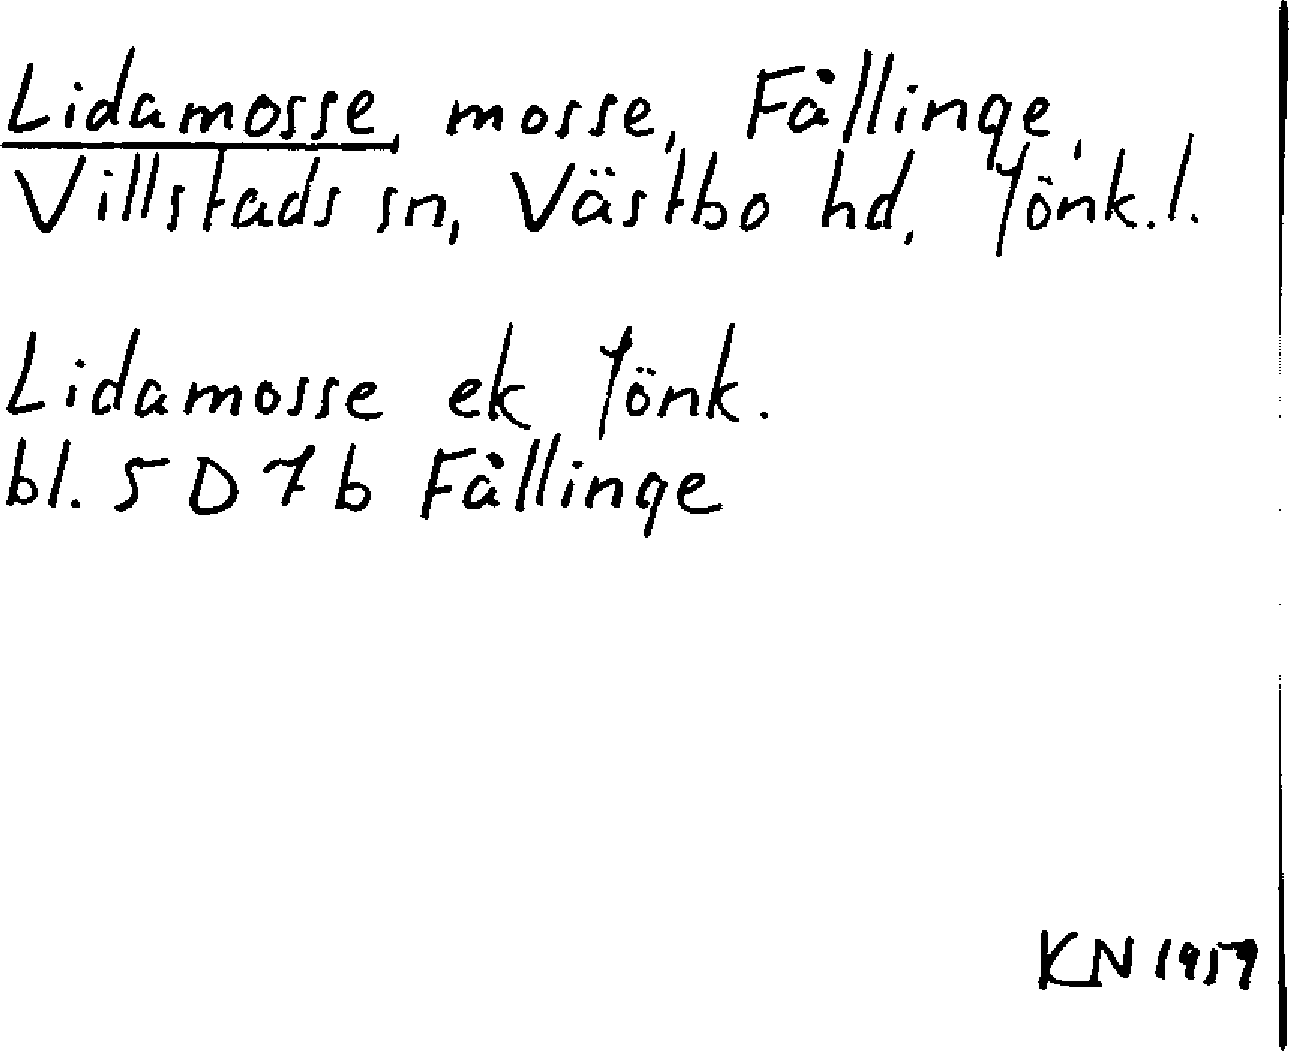 Lidamosse, mosse, Fållinge,
Villstads sn, Västbo hd, Jönk.l.
Lidamosse ek Jönk.
bl. 5D7b Fållinge
KN 1959